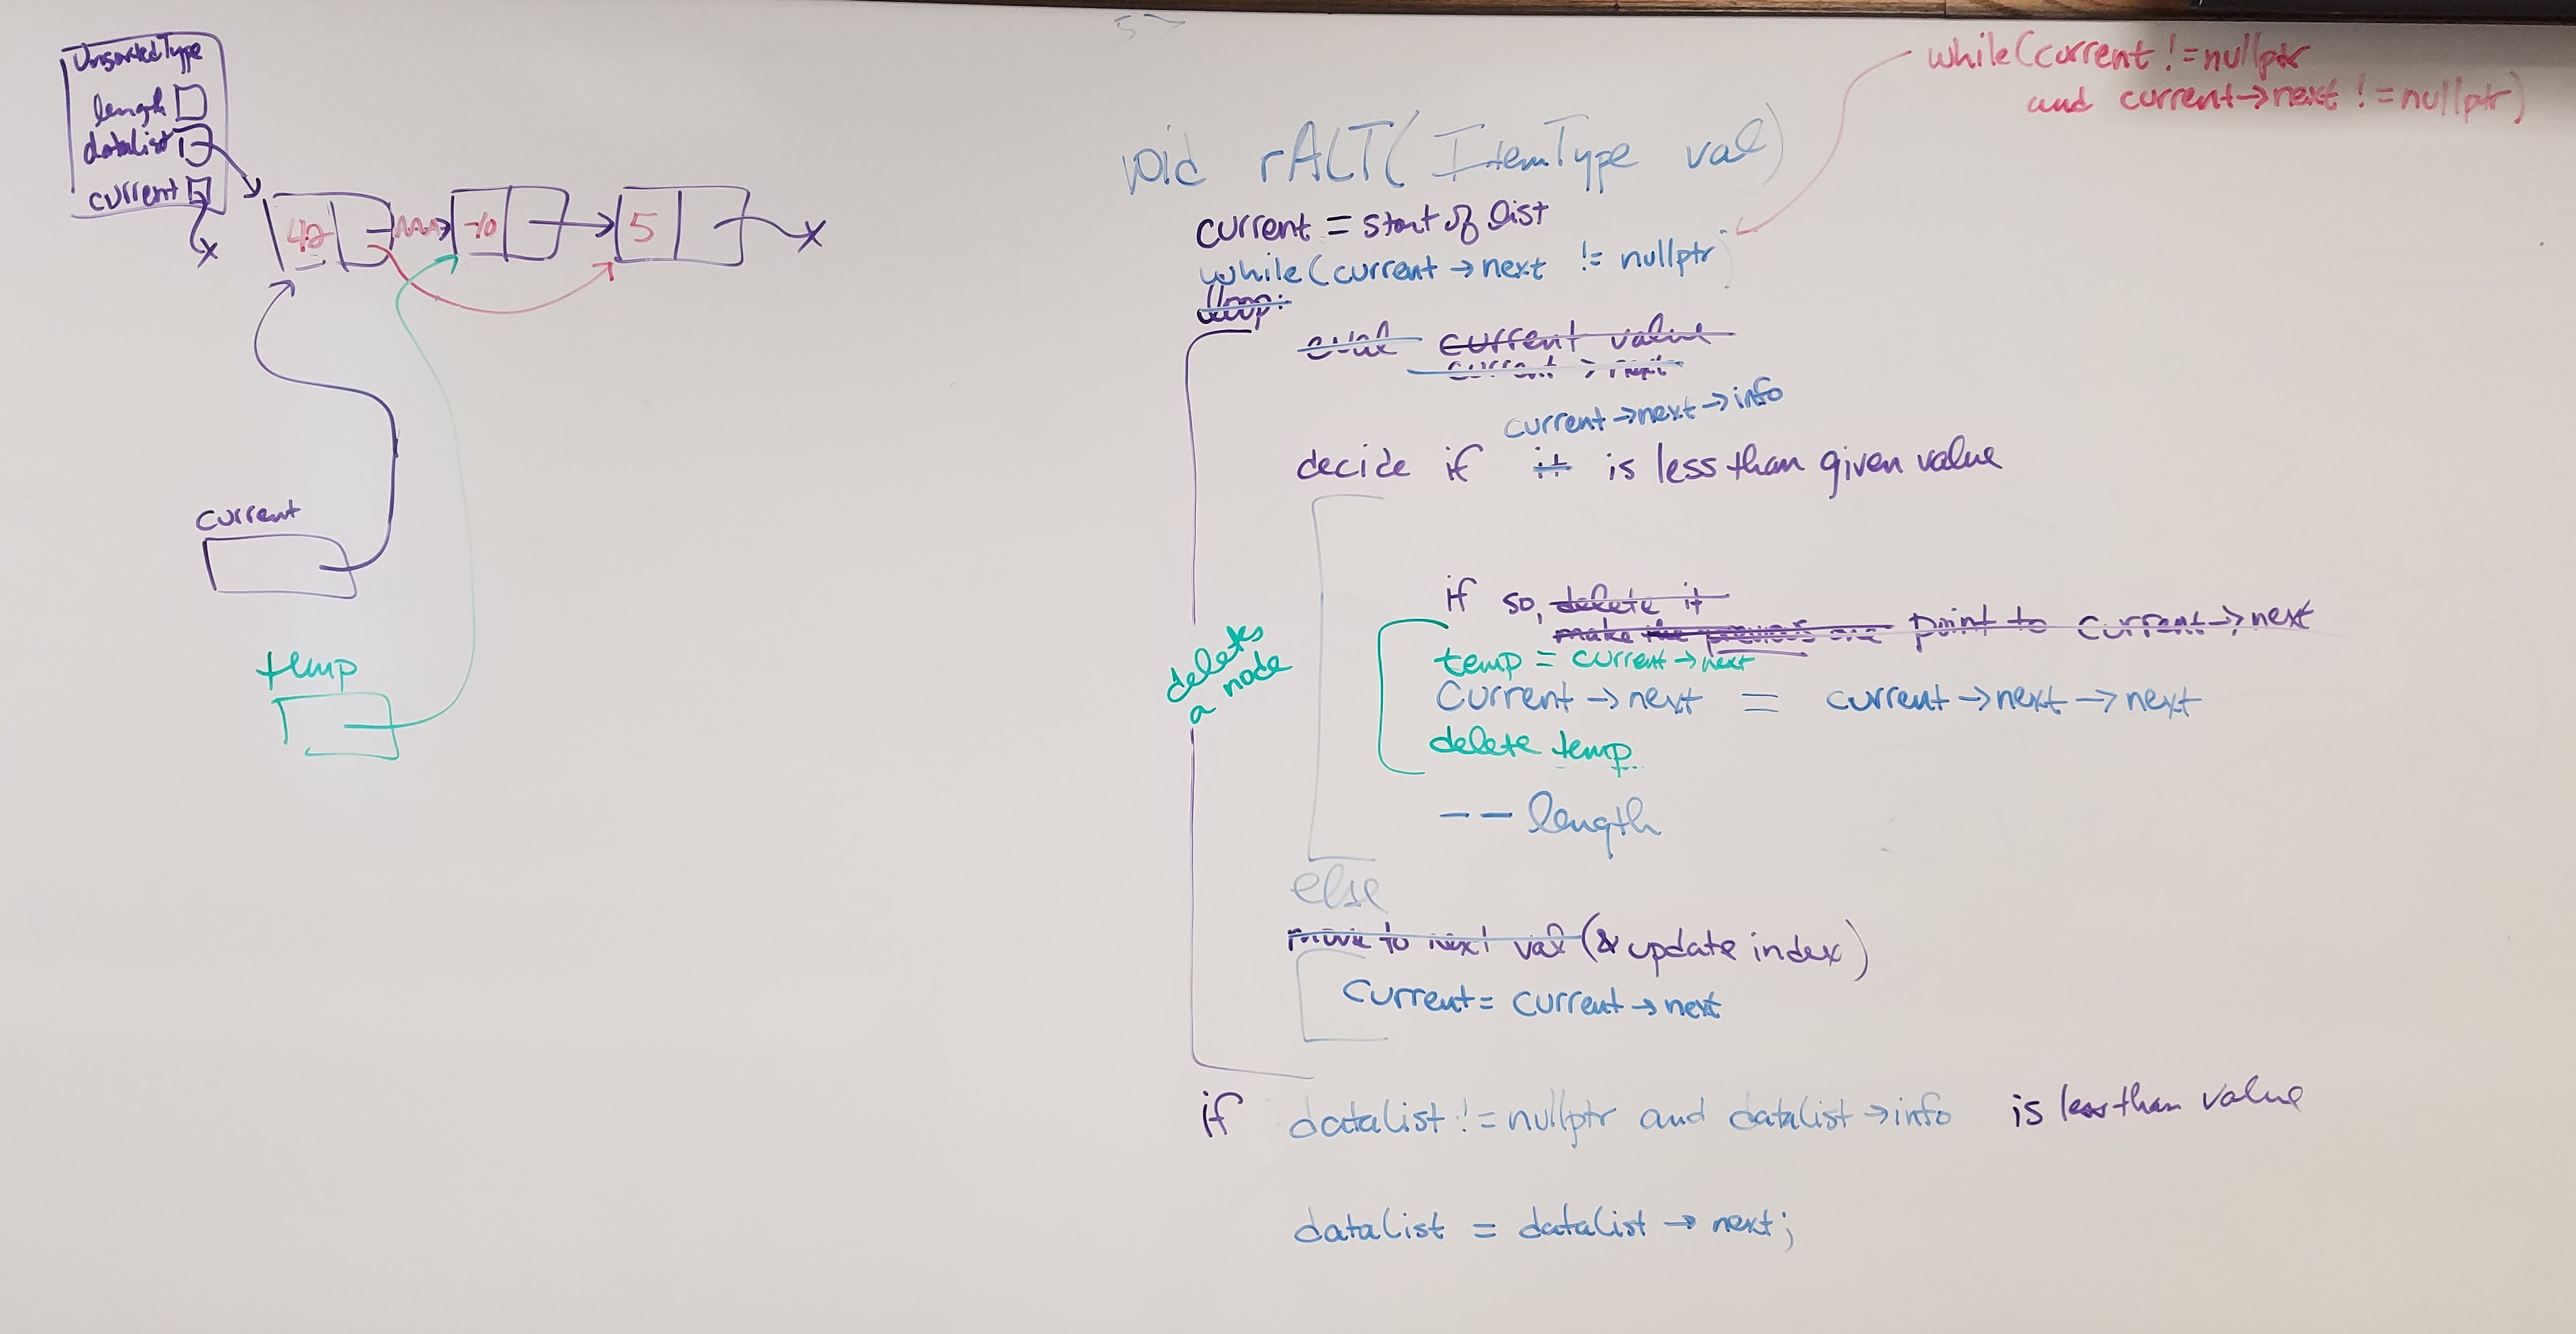 UnsortedType
length
datalist
current
42
-10
5
current
temp
while(current != nullptr
and current->next != nullptr)
void rALT( ItemType val)
current = start of list
while(current →next != nullptr)
loop:
eval current value
current → next
current→next→info
decide if it is less than given value
if so, delete it
make the previous one point to current→next
temp = current →next
current →next = current →next →next
delete temp
-- length
deletes
a node
else
move to next val (& update index)
current = current → next
if datalist != nullptr and datalist →info is less than value
datalist = datalist → next;